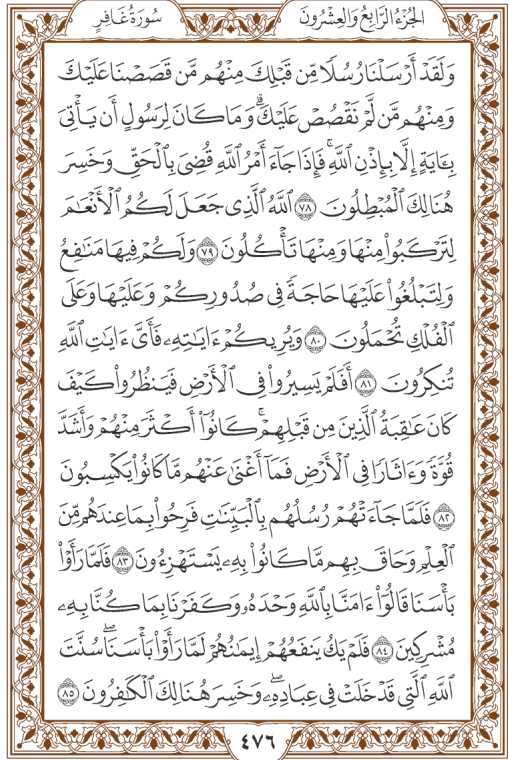 الجُزْءُ الرَّابِعُ وَالعِشْرُونَ
سُورَةُ غَافِرٍ
وَلَقَدْ أَرْسَلْنَا رُسُلًا مِّن قَبْلِكَ مِنْهُم مَّن قَصَصْنَا عَلَيْكَ
وَمِنْهُم مَّن لَّمْ نَقْصُصْ عَلَيْكَۗ وَمَا كَانَ لِرَسُولٍ أَن يَأْتِىَ
بِـَٔايَةٍ إِلَّا بِإِذْنِ ٱللَّهِۚ فَإِذَا جَآءَ أَمْرُ ٱللَّهِ قُضِىَ بِٱلْحَقِّ وَخَسِرَ
هُنَالِكَ ٱلْمُبْطِلُونَ ٧٨ ٱللَّهُ ٱلَّذِى جَعَلَ لَكُمُ ٱلْأَنْعَٰمَ
لِتَرْكَبُوا۟ مِنْهَا وَمِنْهَا تَأْكُلُونَ ٧٩ وَلَكُمْ فِيهَا مَنَٰفِعُ
وَلِتَبْلُغُوا۟ عَلَيْهَا حَاجَةً فِى صُدُورِكُمْ وَعَلَيْهَا وَعَلَى
ٱلْفُلْكِ تُحْمَلُونَ ٨٠ وَيُرِيكُمْ ءَايَٰتِهِۦ فَأَىَّ ءَايَٰتِ ٱللَّهِ
تُنكِرُونَ ٨١ أَفَلَمْ يَسِيرُوا۟ فِى ٱلْأَرْضِ فَيَنظُرُوا۟ كَيْفَ
كَانَ عَٰقِبَةُ ٱلَّذِينَ مِن قَبْلِهِمْۚ كَانُوٓا۟ أَكْثَرَ مِنْهُمْ وَأَشَدَّ
قُوَّةً وَءَاثَارًا فِى ٱلْأَرْضِ فَمَآ أَغْنَىٰ عَنْهُم مَّا كَانُوا۟ يَكْسِبُونَ
٨٢ فَلَمَّا جَآءَتْهُمْ رُسُلُهُم بِٱلْبَيِّنَٰتِ فَرِحُوا۟ بِمَا عِندَهُم مِّنَ
ٱلْعِلْمِ وَحَاقَ بِهِم مَّا كَانُوا۟ بِهِۦ يَسْتَهْزِءُونَ ٨٣ فَلَمَّا رَأَوْا۟
بَأْسَنَا قَالُوٓا۟ ءَامَنَّا بِٱللَّهِ وَحْدَهُۥ وَكَفَرْنَا بِمَا كُنَّا بِهِۦ
مُشْرِكِينَ ٨٤ فَلَمْ يَكُ يَنفَعُهُمْ إِيمَٰنُهُمْ لَمَّا رَأَوْا۟ بَأْسَنَاۖ سُنَّتَ
ٱللَّهِ ٱلَّتِى قَدْ خَلَتْ فِى عِبَادِهِۦۖ وَخَسِرَ هُنَالِكَ ٱلْكَٰفِرُونَ ٨٥
٤٧٦